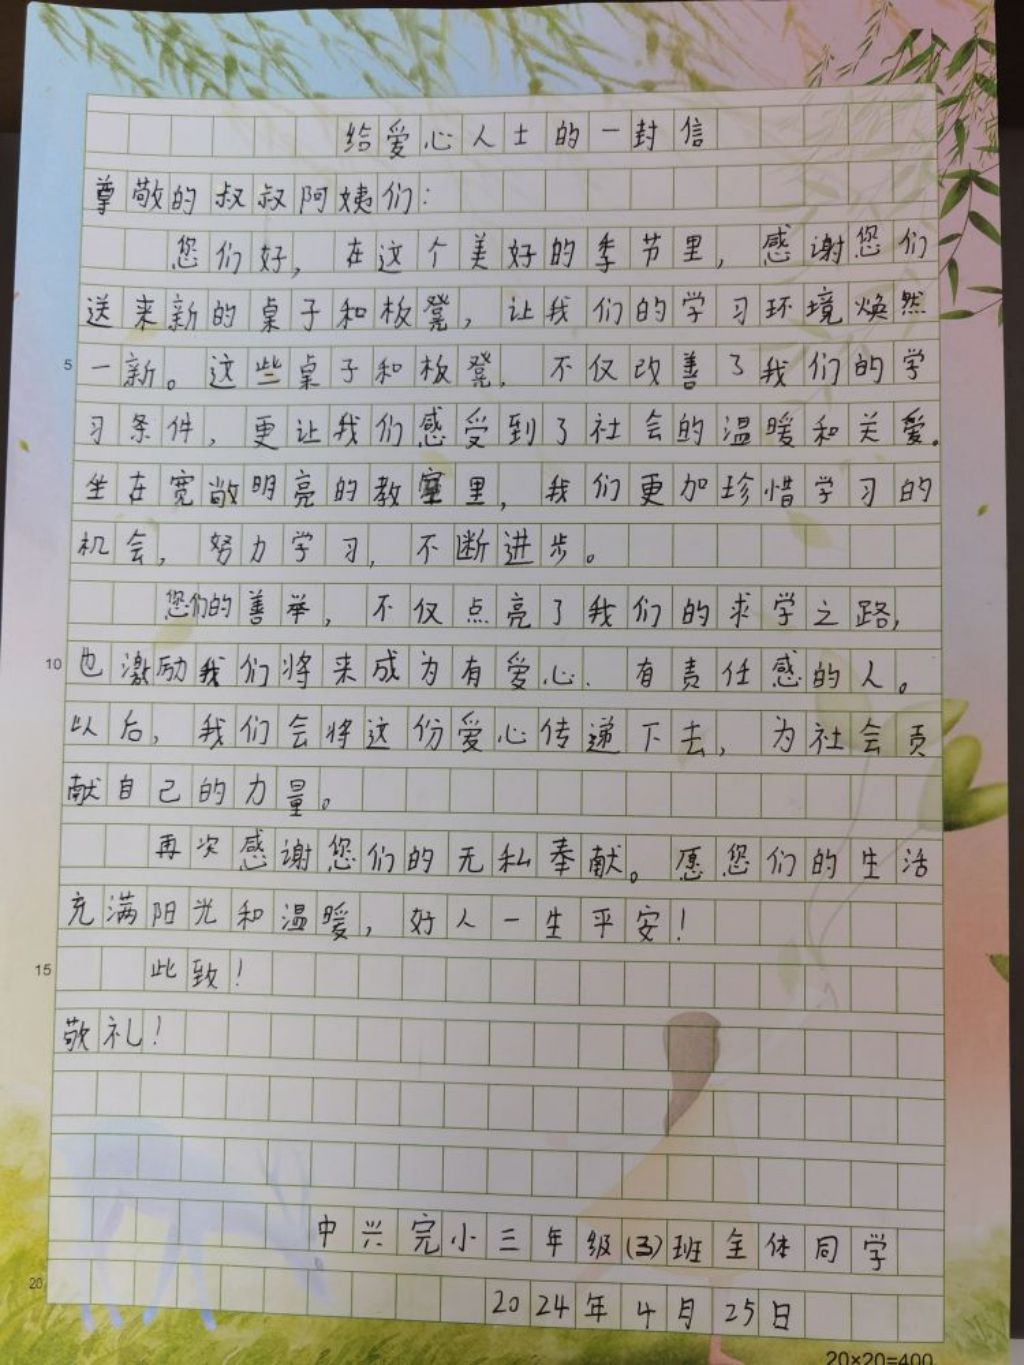 给爱心人士的一封信
尊敬的叔叔阿姨们:
您们好,在这个美好的季节里,感谢您们
送来新的桌子和板凳,让我们的学习环境焕然
5
一新。这些桌子和板凳,不仅改善了我们的学
习条件,更让我们感受到了社会的温暖和关爱。
坐在宽敞明亮的教室里,我们更加珍惜学习的
机会,努力学习,不断进步。
您们的善举,不仅点亮了我们的求学之路,
10
也激励我们将来成为有爱心、有责任感的人。
以后,我们会将这份爱心传递下去,为社会贡
献自己的力量。
再次感谢您们的无私奉献。愿您们的生活
充满阳光和温暖,好人一生平安!
15
此致!
敬礼!
中兴完小三年级(3)班全体同学
20
2024年4月25日
20×20=400